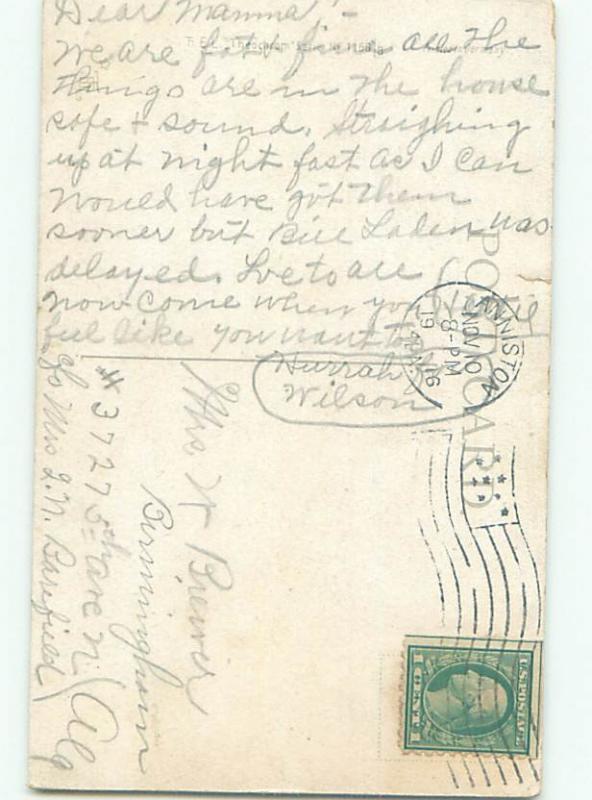 Dear Mamma! -
We are fat & fine. all the
things are in the house
safe & sound. Straighing
up at night fast as I can
would have got them
sooner but Bill Laden was
delayed. Love to all
now come when you
feel like you want to.
Hurrah for
Wilson
POST CARD
ANNISTON
NOV 10
8-PM
1916
ALA.
Mrs W Brewer
Birmingham
Ala
# 3727 5th ave N
c/o Mrs I. N. Barefield
U.S. POSTAGE
1 CENT 1